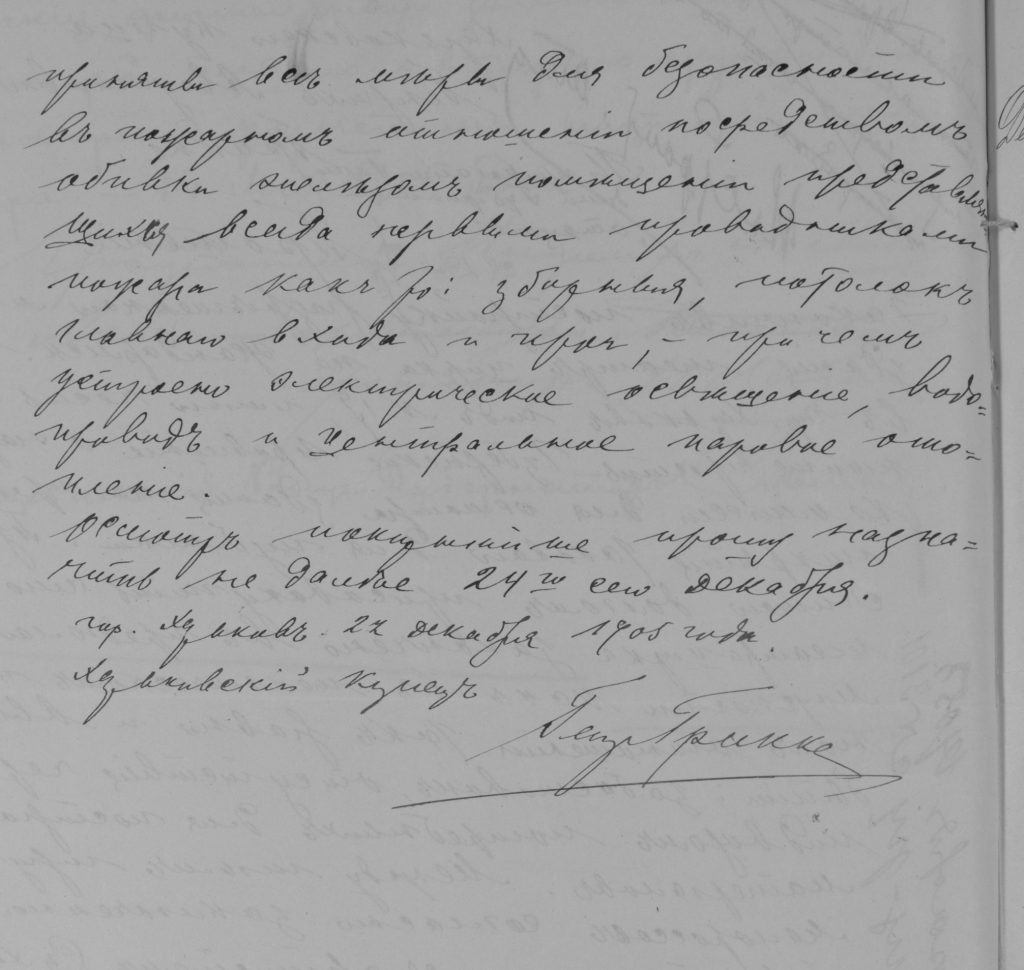 приняты всѣ мѣры для безопасности
въ пожарномъ отношеніи посредствомъ
обивки желѣзомъ помѣщеній представляю
щихся всегда первыми проводниками
пожара какъ то: уборныя, потолокъ
главнаго входа и проч, – при чемъ
устроено электрическое освѣщеніе, водо=
проводъ и центральное паровое ото=
пленіе.
Осмотръ покорнѣйше прошу назна=
чить не далѣе 24го сего декабря.
гор. Харьковъ 22 декабря 1905 года.
Харьковскій купецъ
Грикке